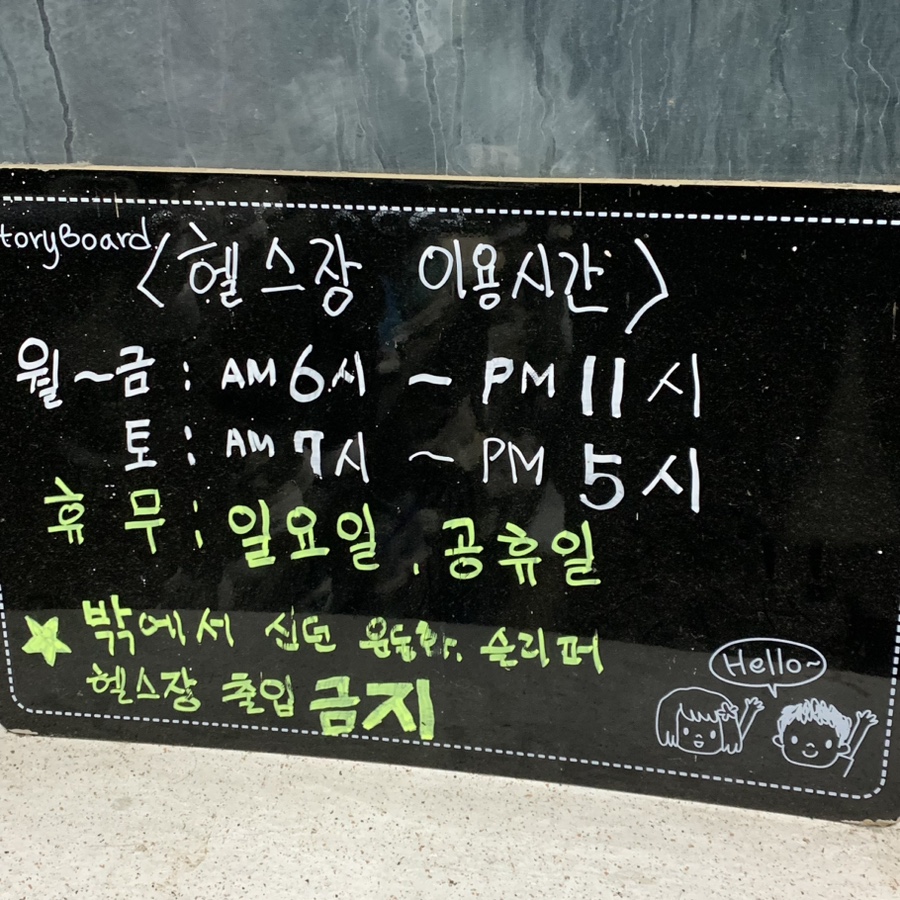 toryBoard
<헬스장 이용시간>
월~금 : AM 6시 ~ PM 11시
토 : AM 7시 ~ PM 5시
휴무 : 일요일, 공휴일
★ 밖에서 신던 운동화, 슬리퍼
헬스장 출입 금지
Hello~